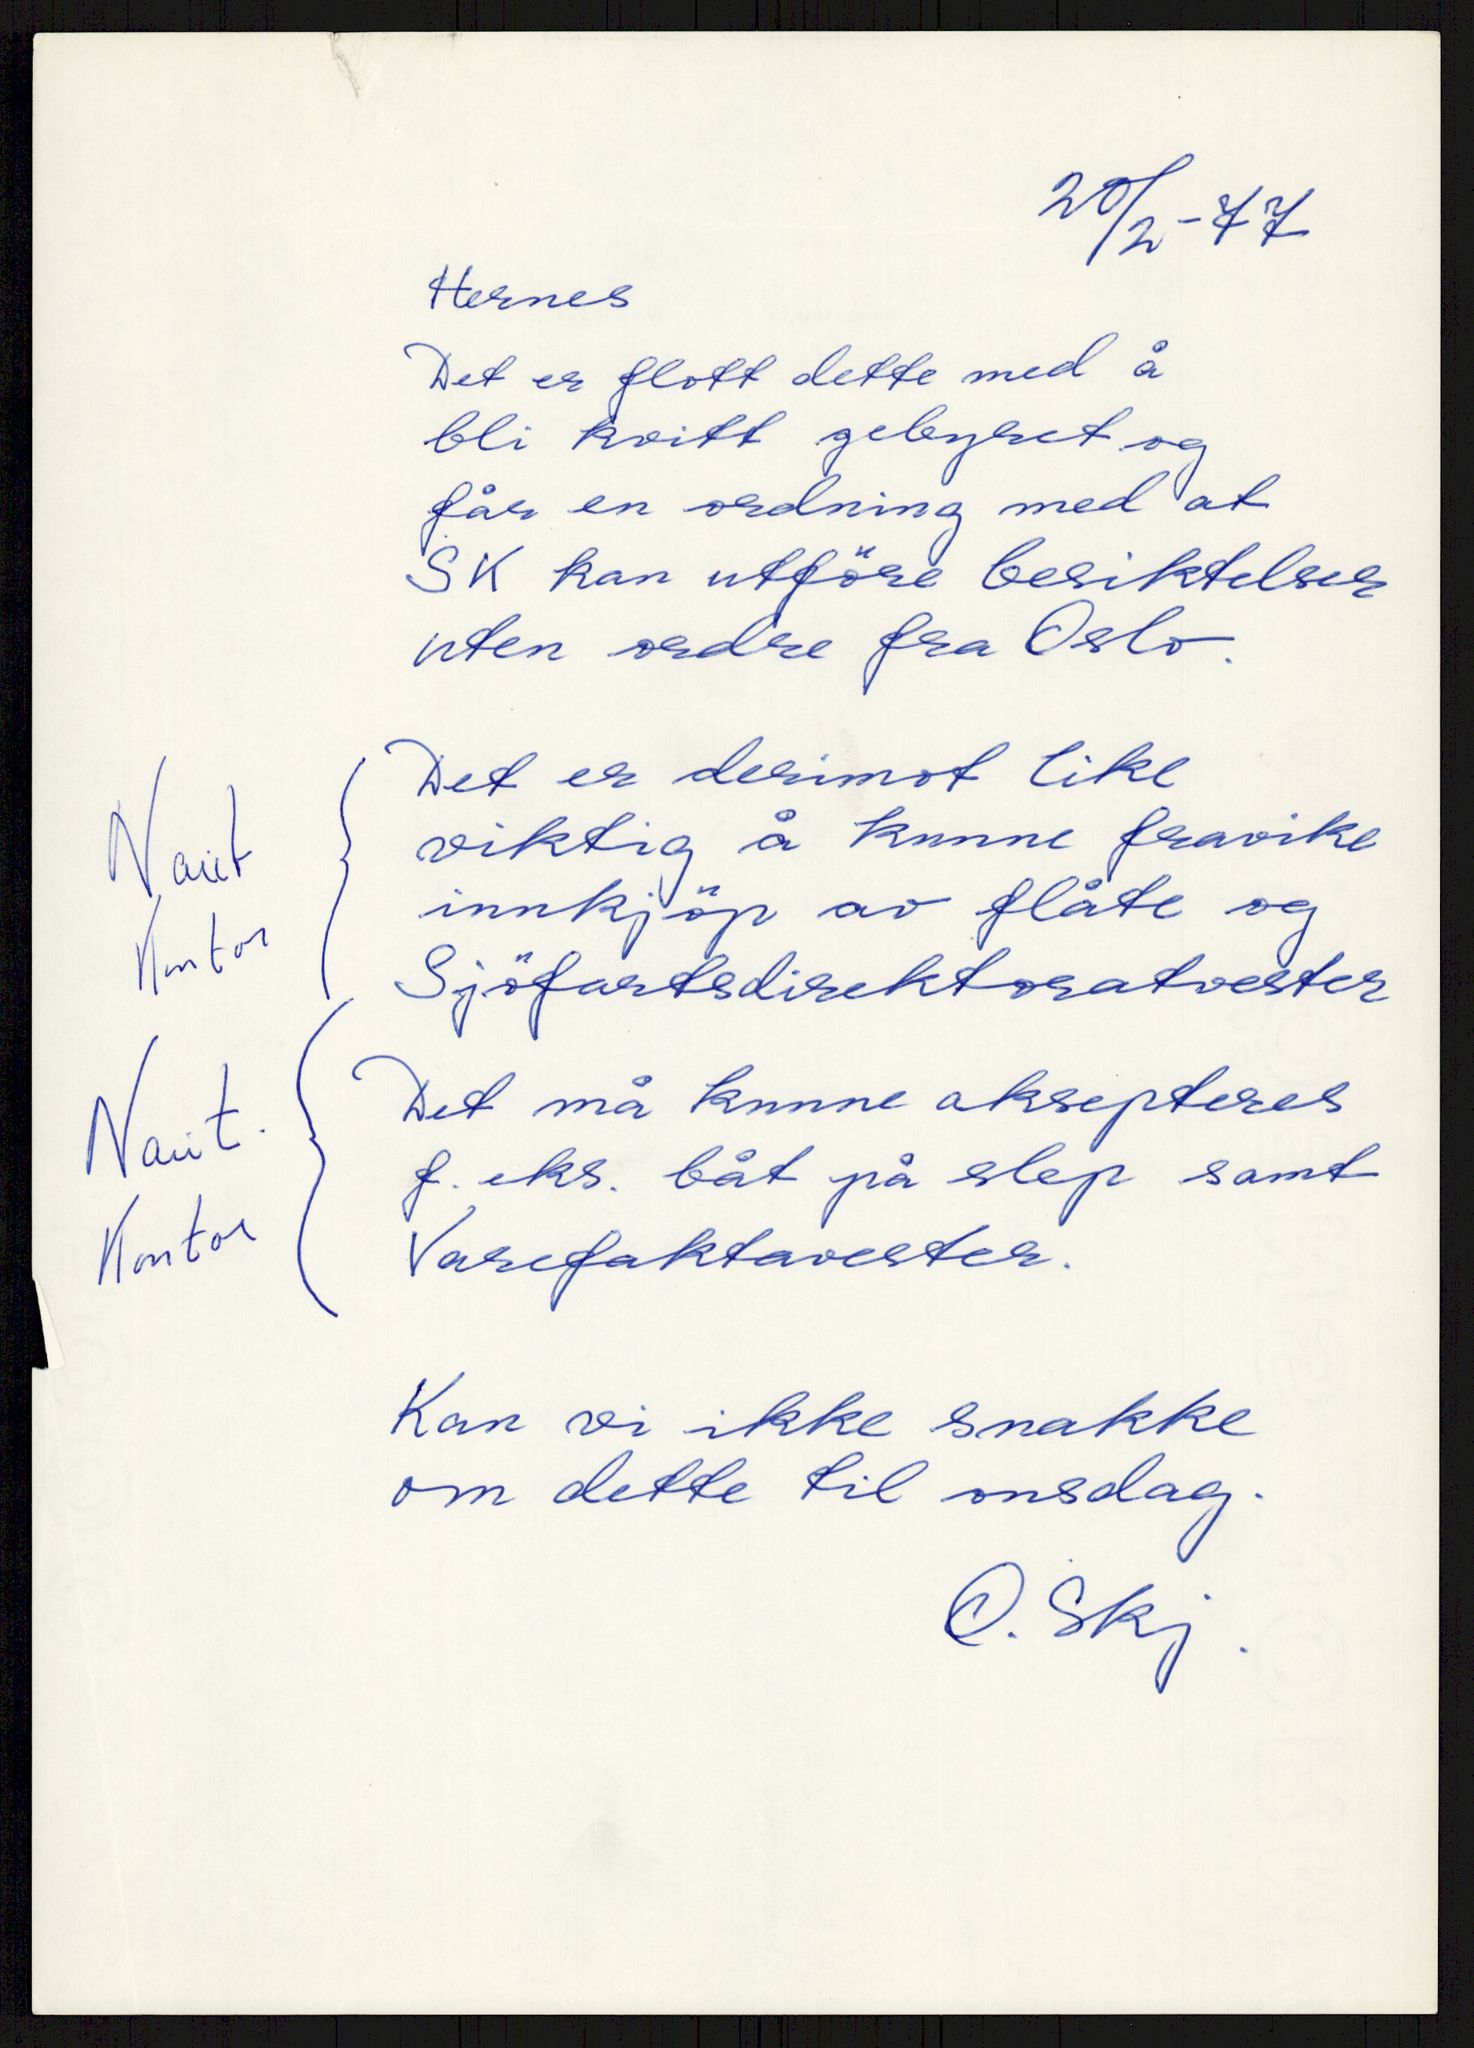 20/2-77
Hernes
Det er flott dette med å
bli kvitt gebyret og
får en ordning med at
SK kan utföre besiktelser
uten ordre fra Oslo.
Det er derimot like
viktig å kunne fravike
innkjöp av flåte og
Sjöfartsdirektoratvester
Naut
Kontor
Det må kunne aksepteres
f. eks. båt på slep samt
Varefaktavester.
Naut.
Kontor
Kan vi ikke snakke
om dette til onsdag.
O. Skj.